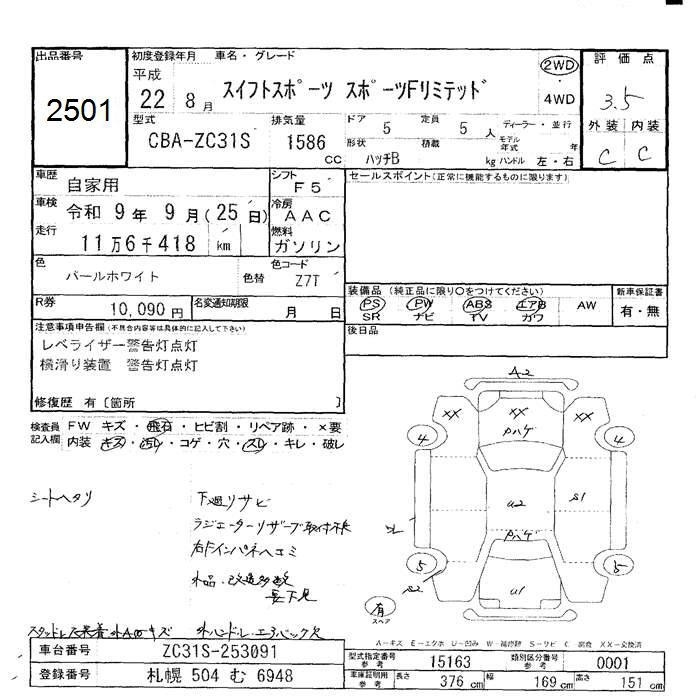 出品番号
2501
初度登録年月 車名・グレード
平成
22 8月 スイフトスポーツ スポーツFリミテッド
2WD
4WD
評価点
3.5
外装 内装
C C
型式 排気量 ドア 定員 ディーラー・並行
CBA-ZC31S 1586 cc 5 5人
形状 積載 モデル年式 年
ハッチB kg ハンドル 左・右
車歴 自家用 シフト F5
車検 令和 9年 9月(25日) 冷房 AAC
走行 11万6千418 km 燃料 ガソリン
色 パールホワイト 色替 色コード Z7T
R券 10,090円 名変通知期限 月 日
セールスポイント(正常に機能するものに限ります)
装備品(純正品に限り○をつけてください) 新車保証書
PS PW ABS エアB AW 有・無
SR ナビ TV カワ
後日品
注意事項申告欄(不具合内容等は具体的に記入して下さい)
レベライザー警告灯点灯
横滑り装置 警告灯点灯
修復歴 有[箇所 ]
検査員 FW キズ・飛石・ヒビ割・リペア跡・×要
記入欄 内装 キズ・汚レ・コゲ・穴・スレ・キレ・破レ
シートヘタリ
下廻リサビ
ラジエーターリザーブ取付不良
右Fインパネヘコミ
A2
XX XX XX
Pハゲ
4 4
U2 S1
Pハゲ
5 5
S2
U1
有
スペア
A-キズ E-エクボ U-凹み W-補修跡 S-サビ C 腐食 XX-交換済
車台番号 ZC31S-253091
登録番号 札幌 504 む 6948
型式指定番号 参考 15163 類別区分番号 参考 0001
車庫証明用 参考 長さ 376 cm 幅 169 cm 高さ 151 cm